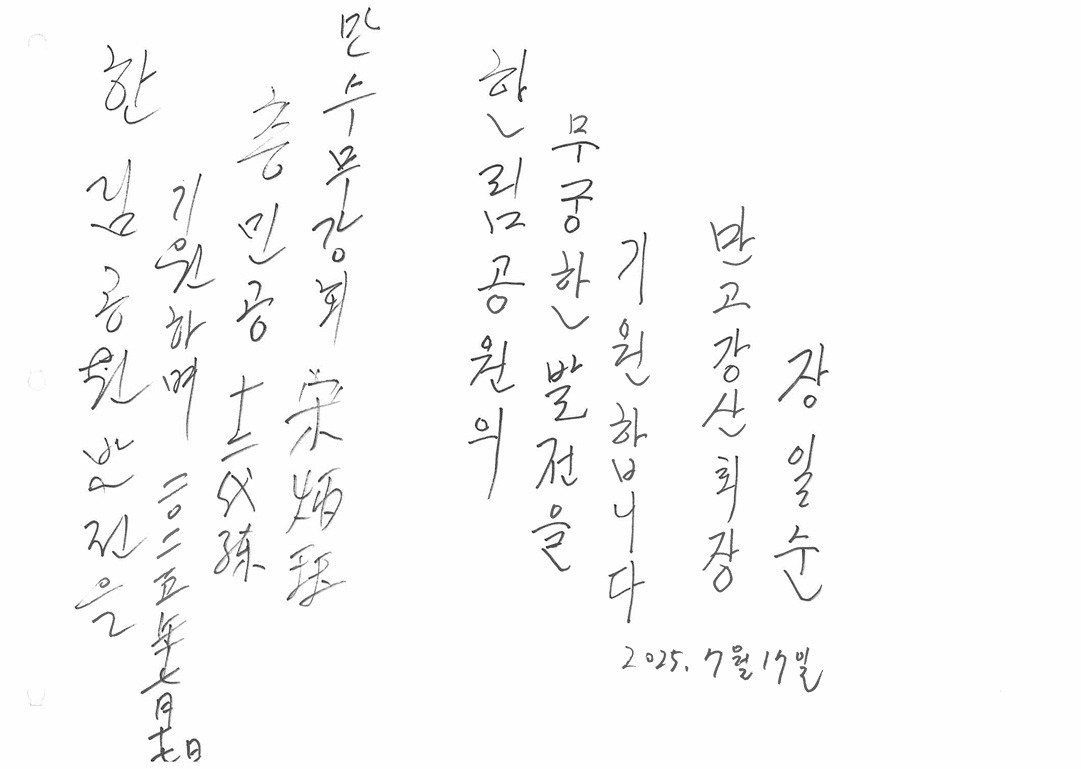 한림공원 발전을
기원하며 二〇二五年 七月 十七日
충민공 十二代孫
만수무강회 宋炳珏
한림공원의
무궁한 발전을
기원합니다
만고강산 회장
장일순
2025. 7월 17일